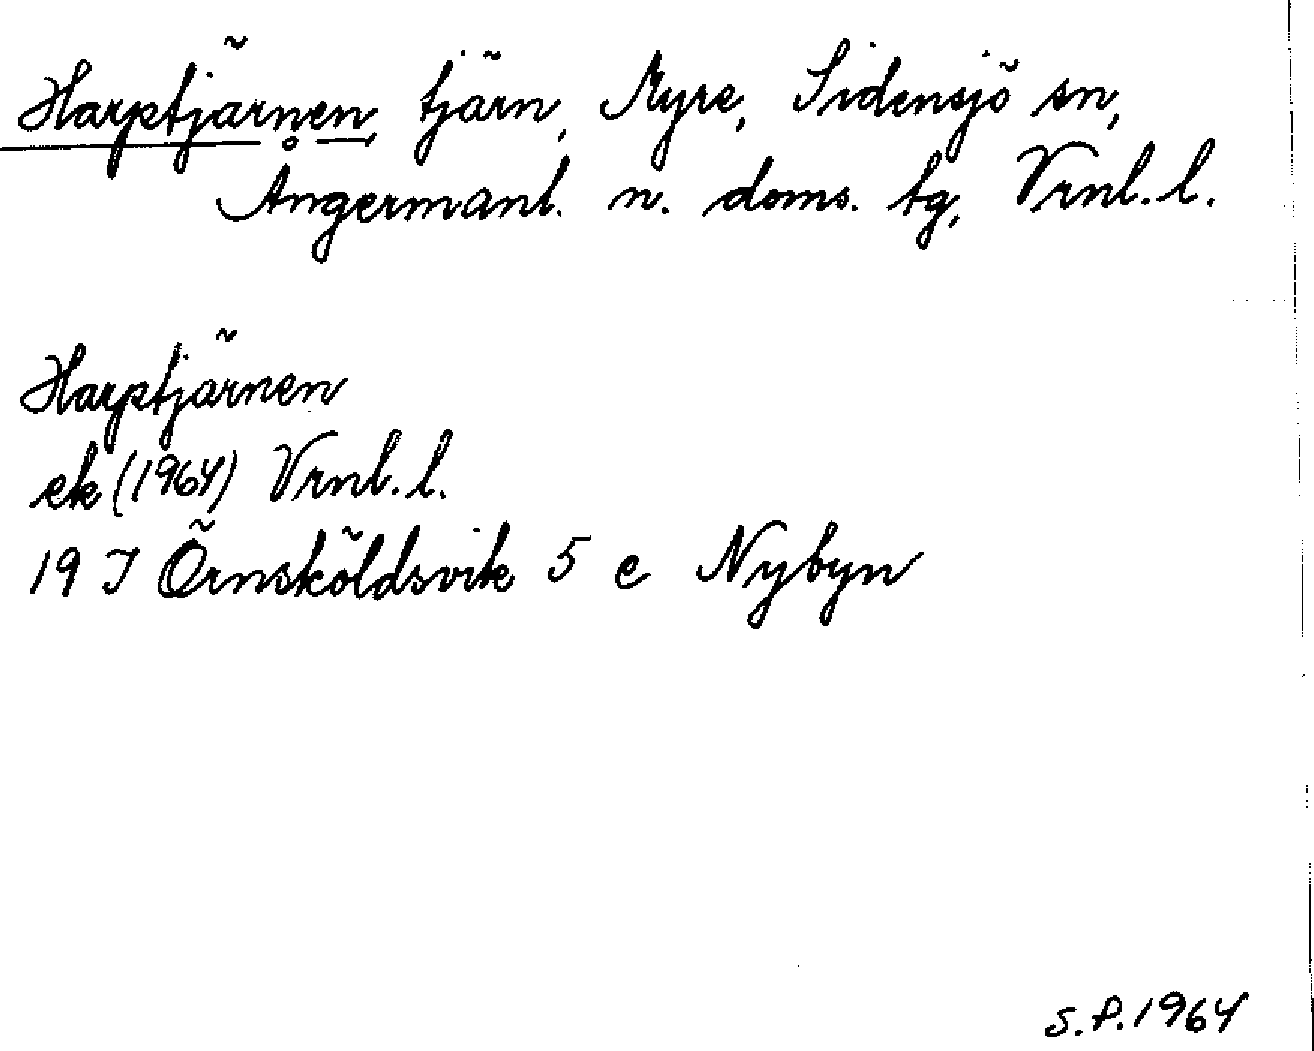 Harptjärnen, tjärn, Myre, Sidensjö sn,
Ångermanl. n. doms. tg, Vrnl. l.
Harptjärnen
ek (1964) Vrnl. l.
19 J Örnsköldsvik 5 e Nybyn
S.P. 1964